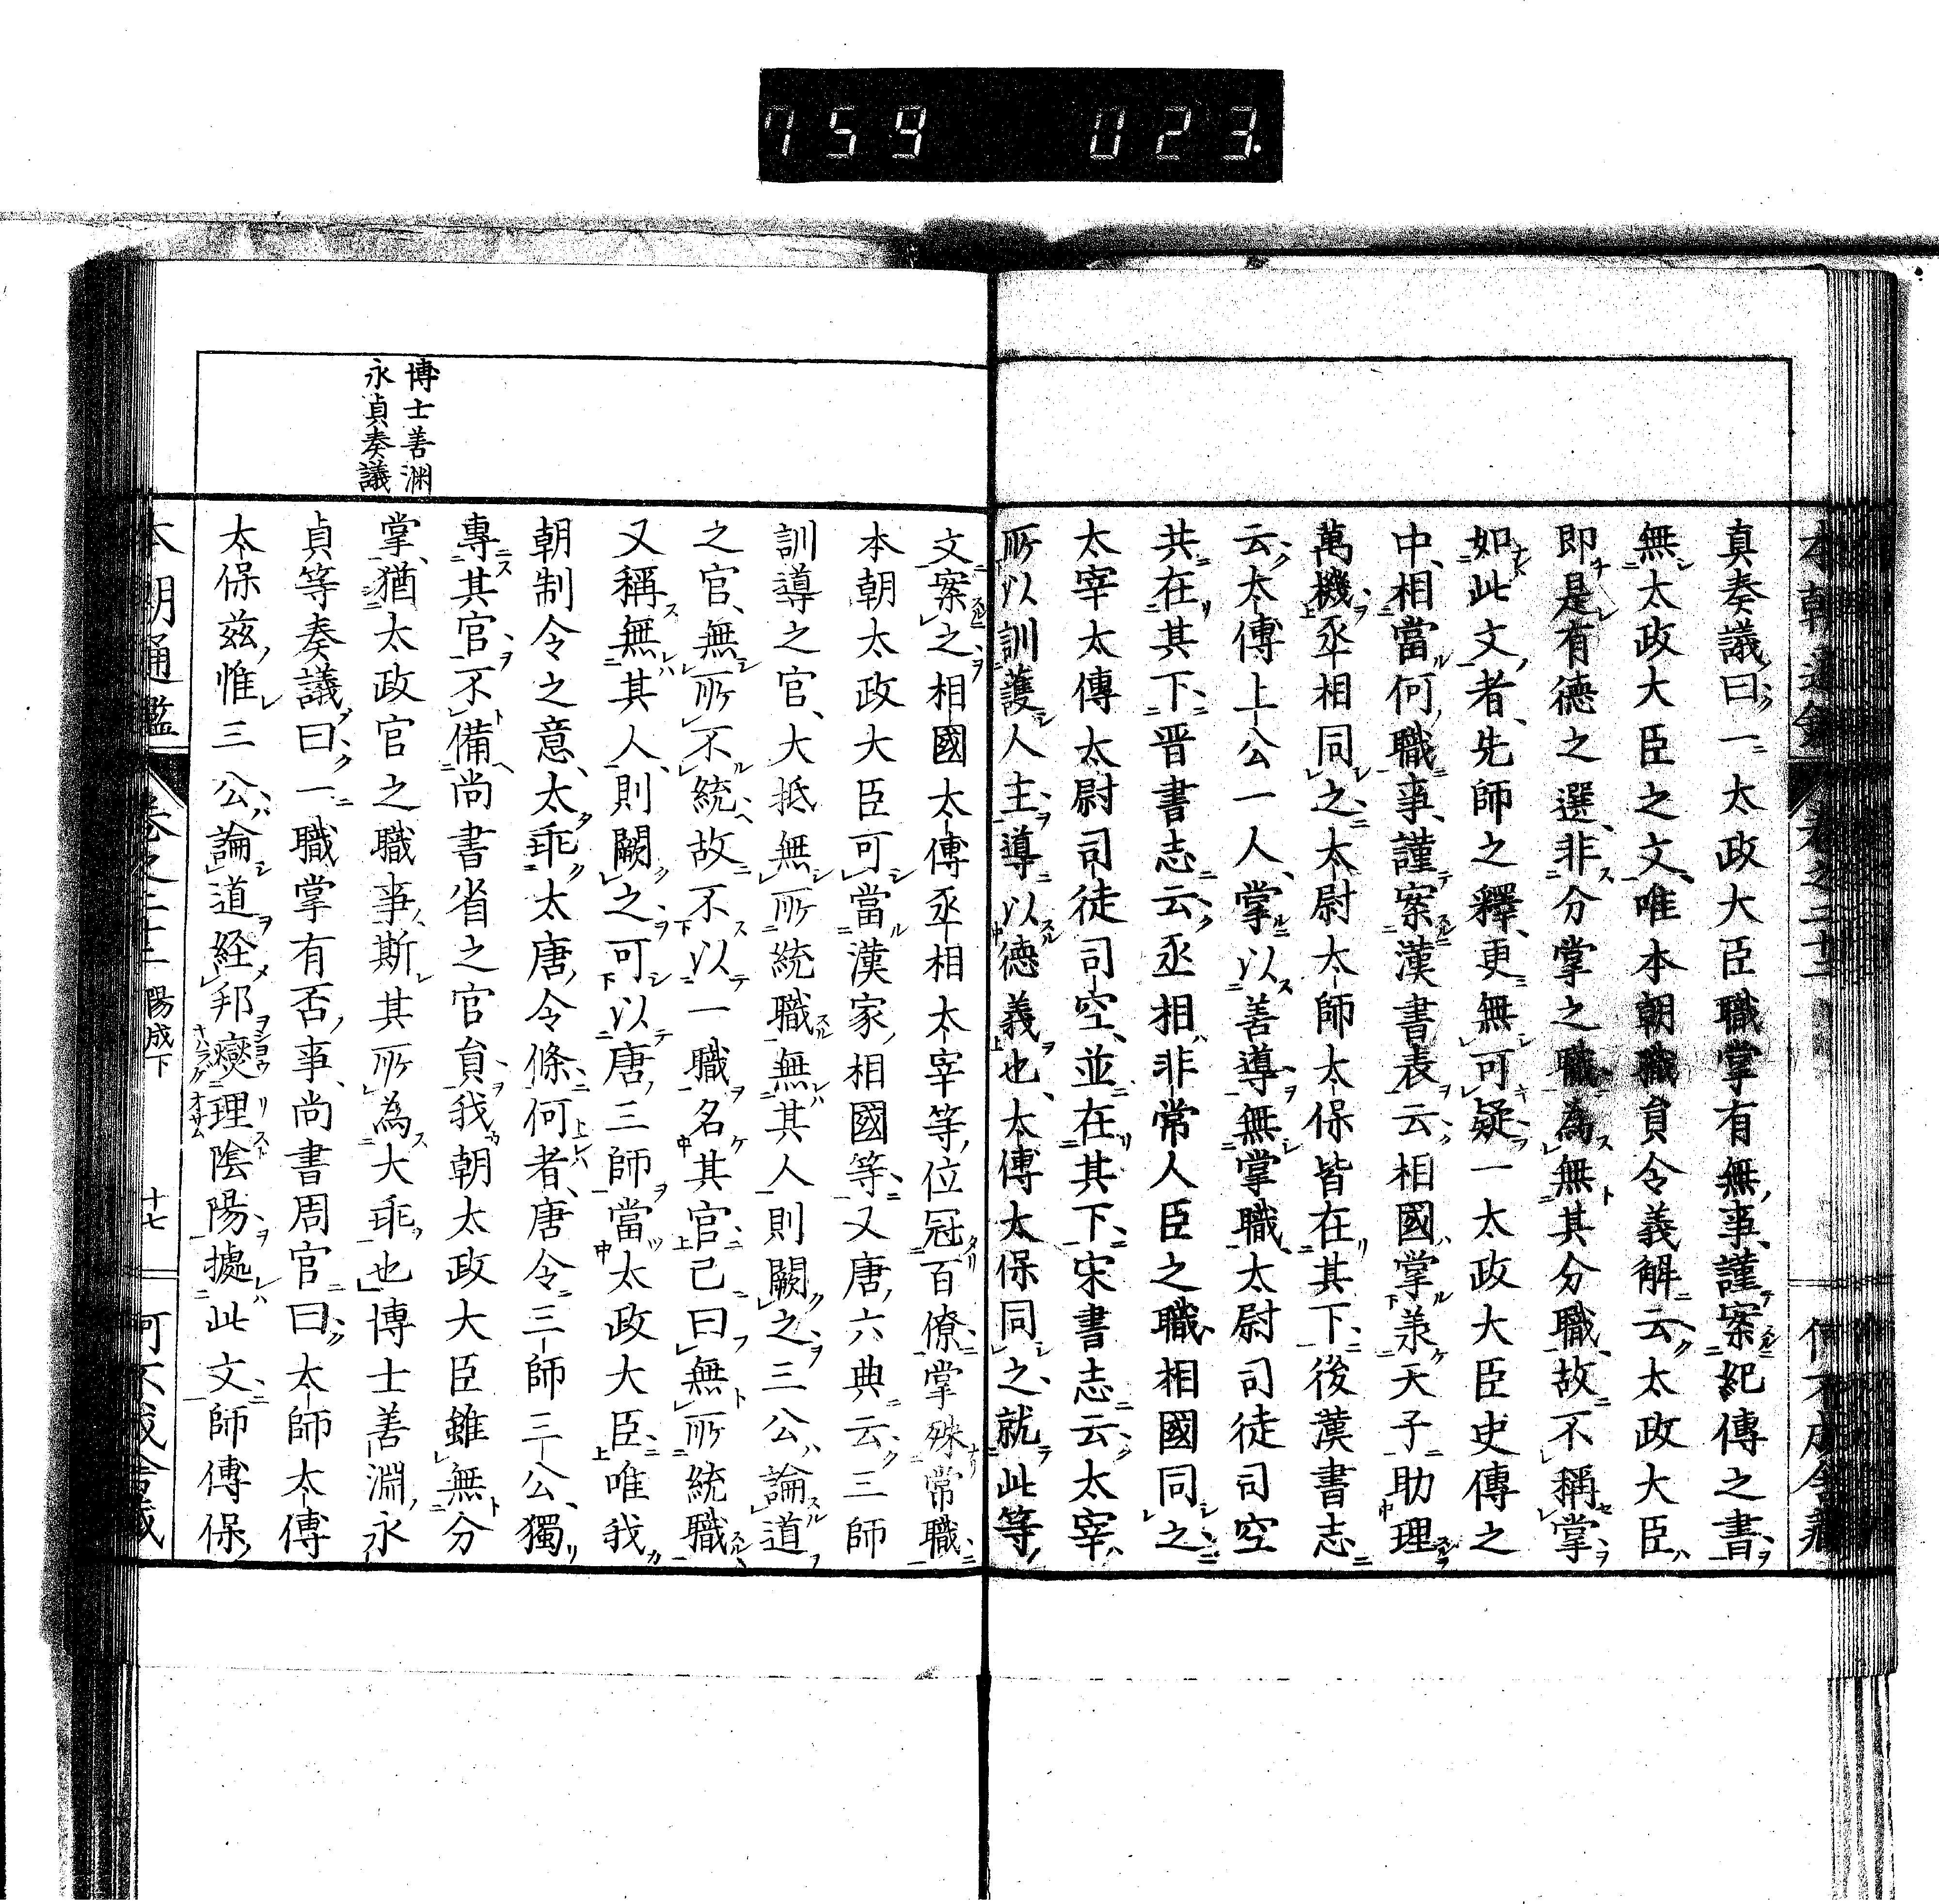 759 023.
真奏議曰一太政大臣職掌有無事謹案紀傳之書
無太政大臣之文唯本朝職員令義解云太政大臣
即是有德之選非分掌之職為無其分職故不稱掌
如此文者先師之釋更無可疑一太政大臣史傳之
中相當何職事謹案漢書表云相國掌羕天子助理
萬機丞相同之太尉太師太保皆在其下後漢書志
云太傅上公一人掌以善導無掌職太尉司徒司空
共在其下晋書志云丞相非常人臣之職相國同之
太宰太傅太尉司徒司空並在其下宋書志云太宰
所以訓護人主導以德義也太傅太保同之就此等
文案之相國太傅丞相太宰等位冠百僚掌殊常職
本朝太政大臣可當漢家相國等又唐六典云三師
訓導之官大抵無所統職無其人則闕之三公論道
之官無所不統故不以一職名其官已曰無所統職
又稱無其人則闕之可以唐三師當太政大臣唯我
朝制令之意太乖太唐令條何者唐令三師三公獨
專其官不備尚書省之官員我朝太政大臣雖無分
掌猶太政官之職事斯其所為大乖也博士善淵永
貞等奏議曰一職掌有否事尚書周官曰太師太傅
太保兹惟三公論道経邦爕理陰陽據此文師傅保
博士善渊
永貞奏議
本朝通鑑 卷之二十二 陽成下 十七